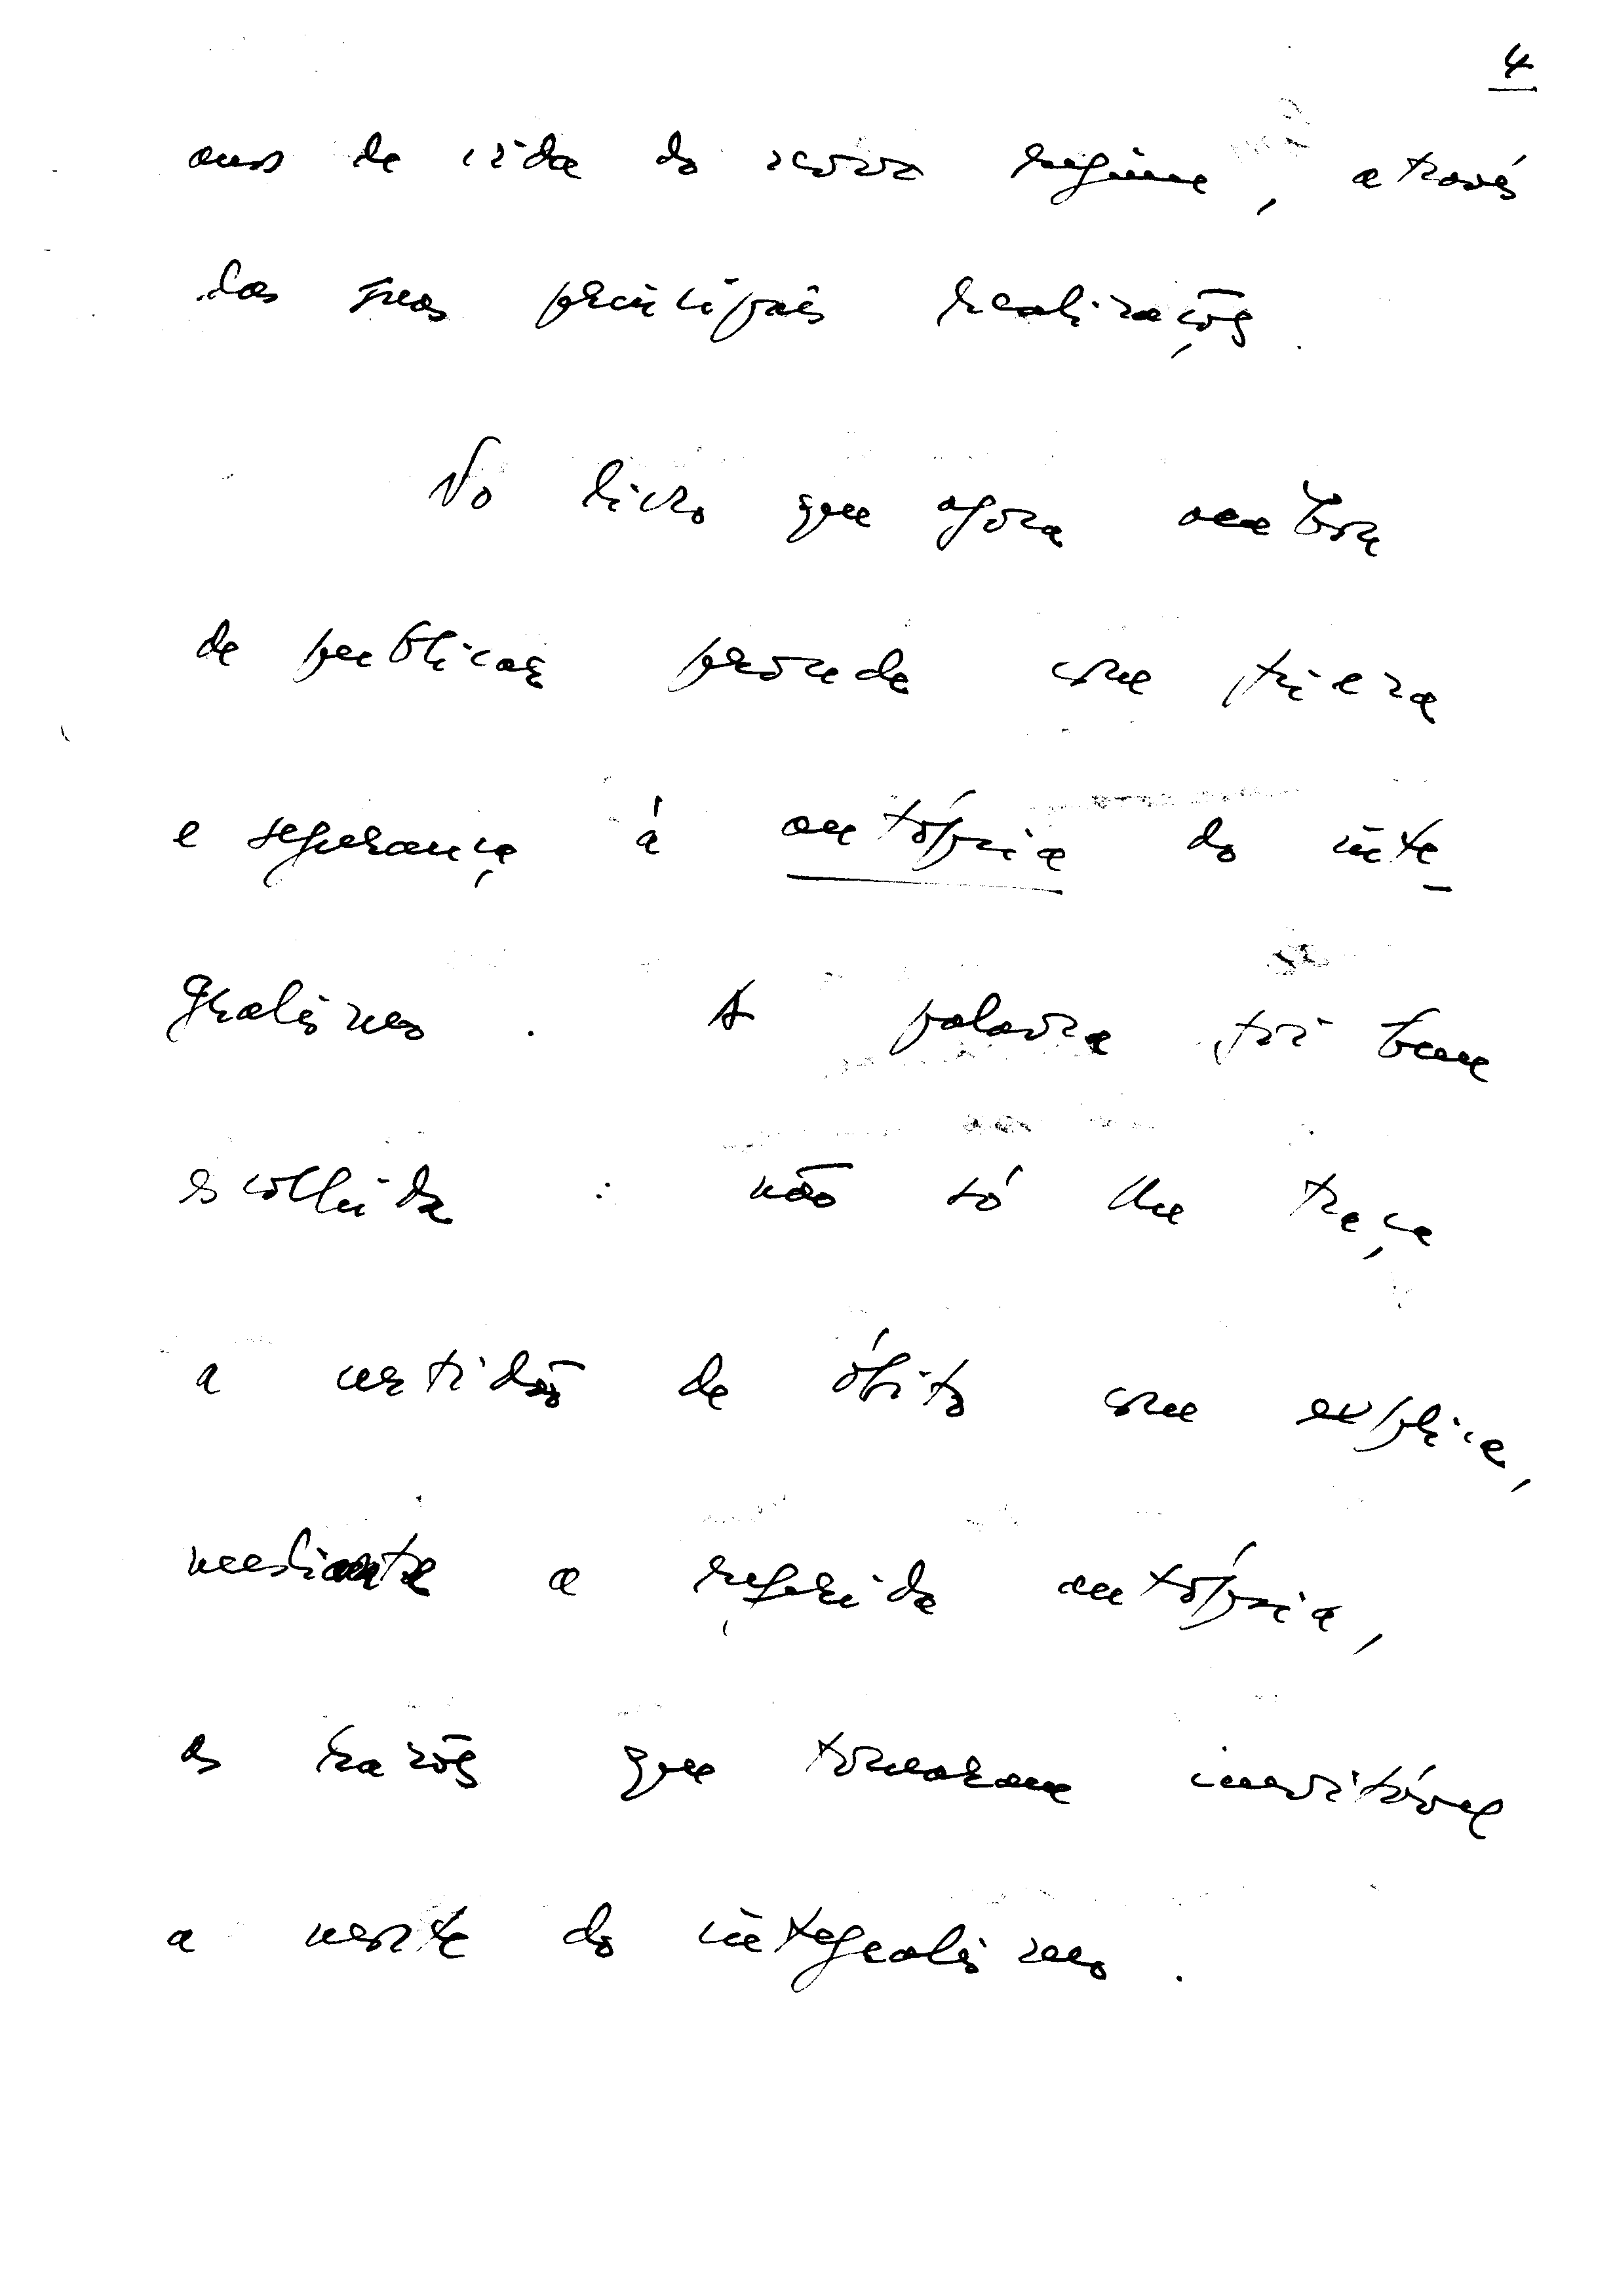 4
anos de vida do novo regime, através
das suas principais realizações.
No livro que agora acaba
de publicar procede com frieza
e segurança á autópsia do inte-
gralismo. A palavra foi bem
escolhida: não só lhe traça
a certidão de óbito como explica,
mediante a referida autópsia,
as razões que tornaram inevitável
a morte do integralismo.